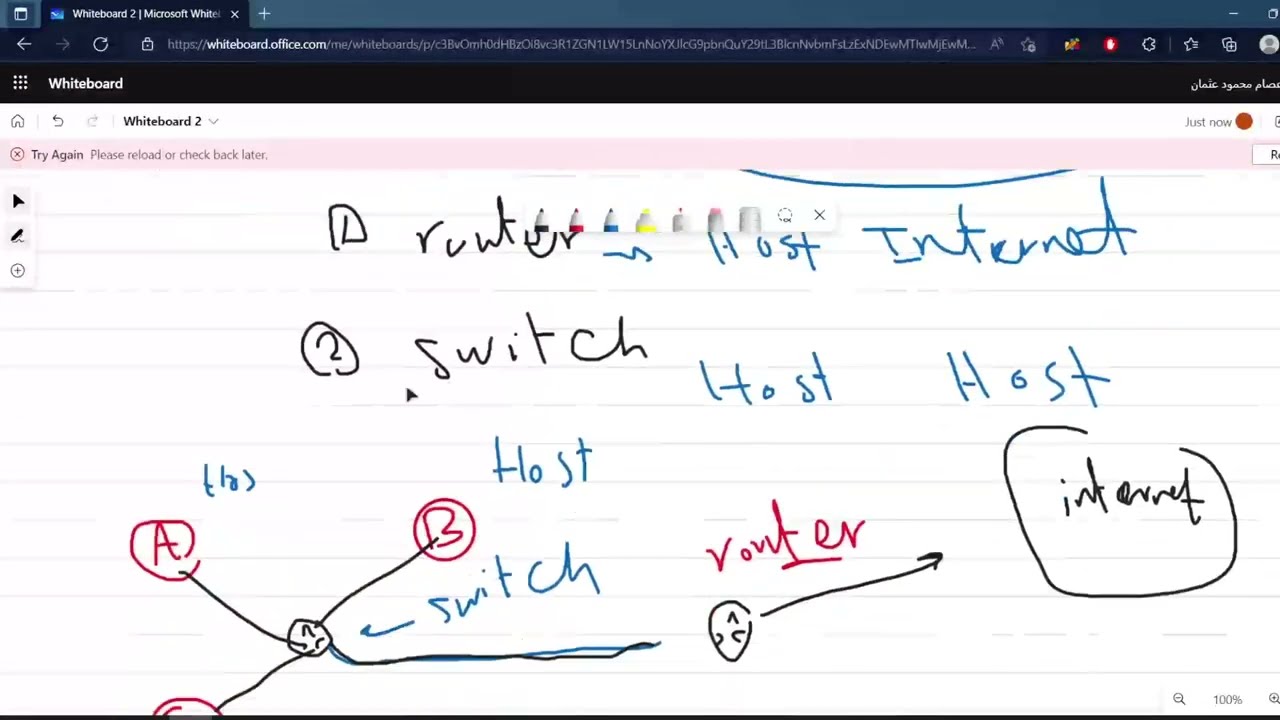 Whiteboard 2 | Microsoft White
https://whiteboard.office.com/me/whiteboards/p/
Whiteboard
عصام محمود عثمان
Whiteboard 2
Just now
Try Again Please reload or check back later.
Re
1 router → Host Internet
2 switch
Host Host
Hos
Host
internet
A
B
router
switch
100%